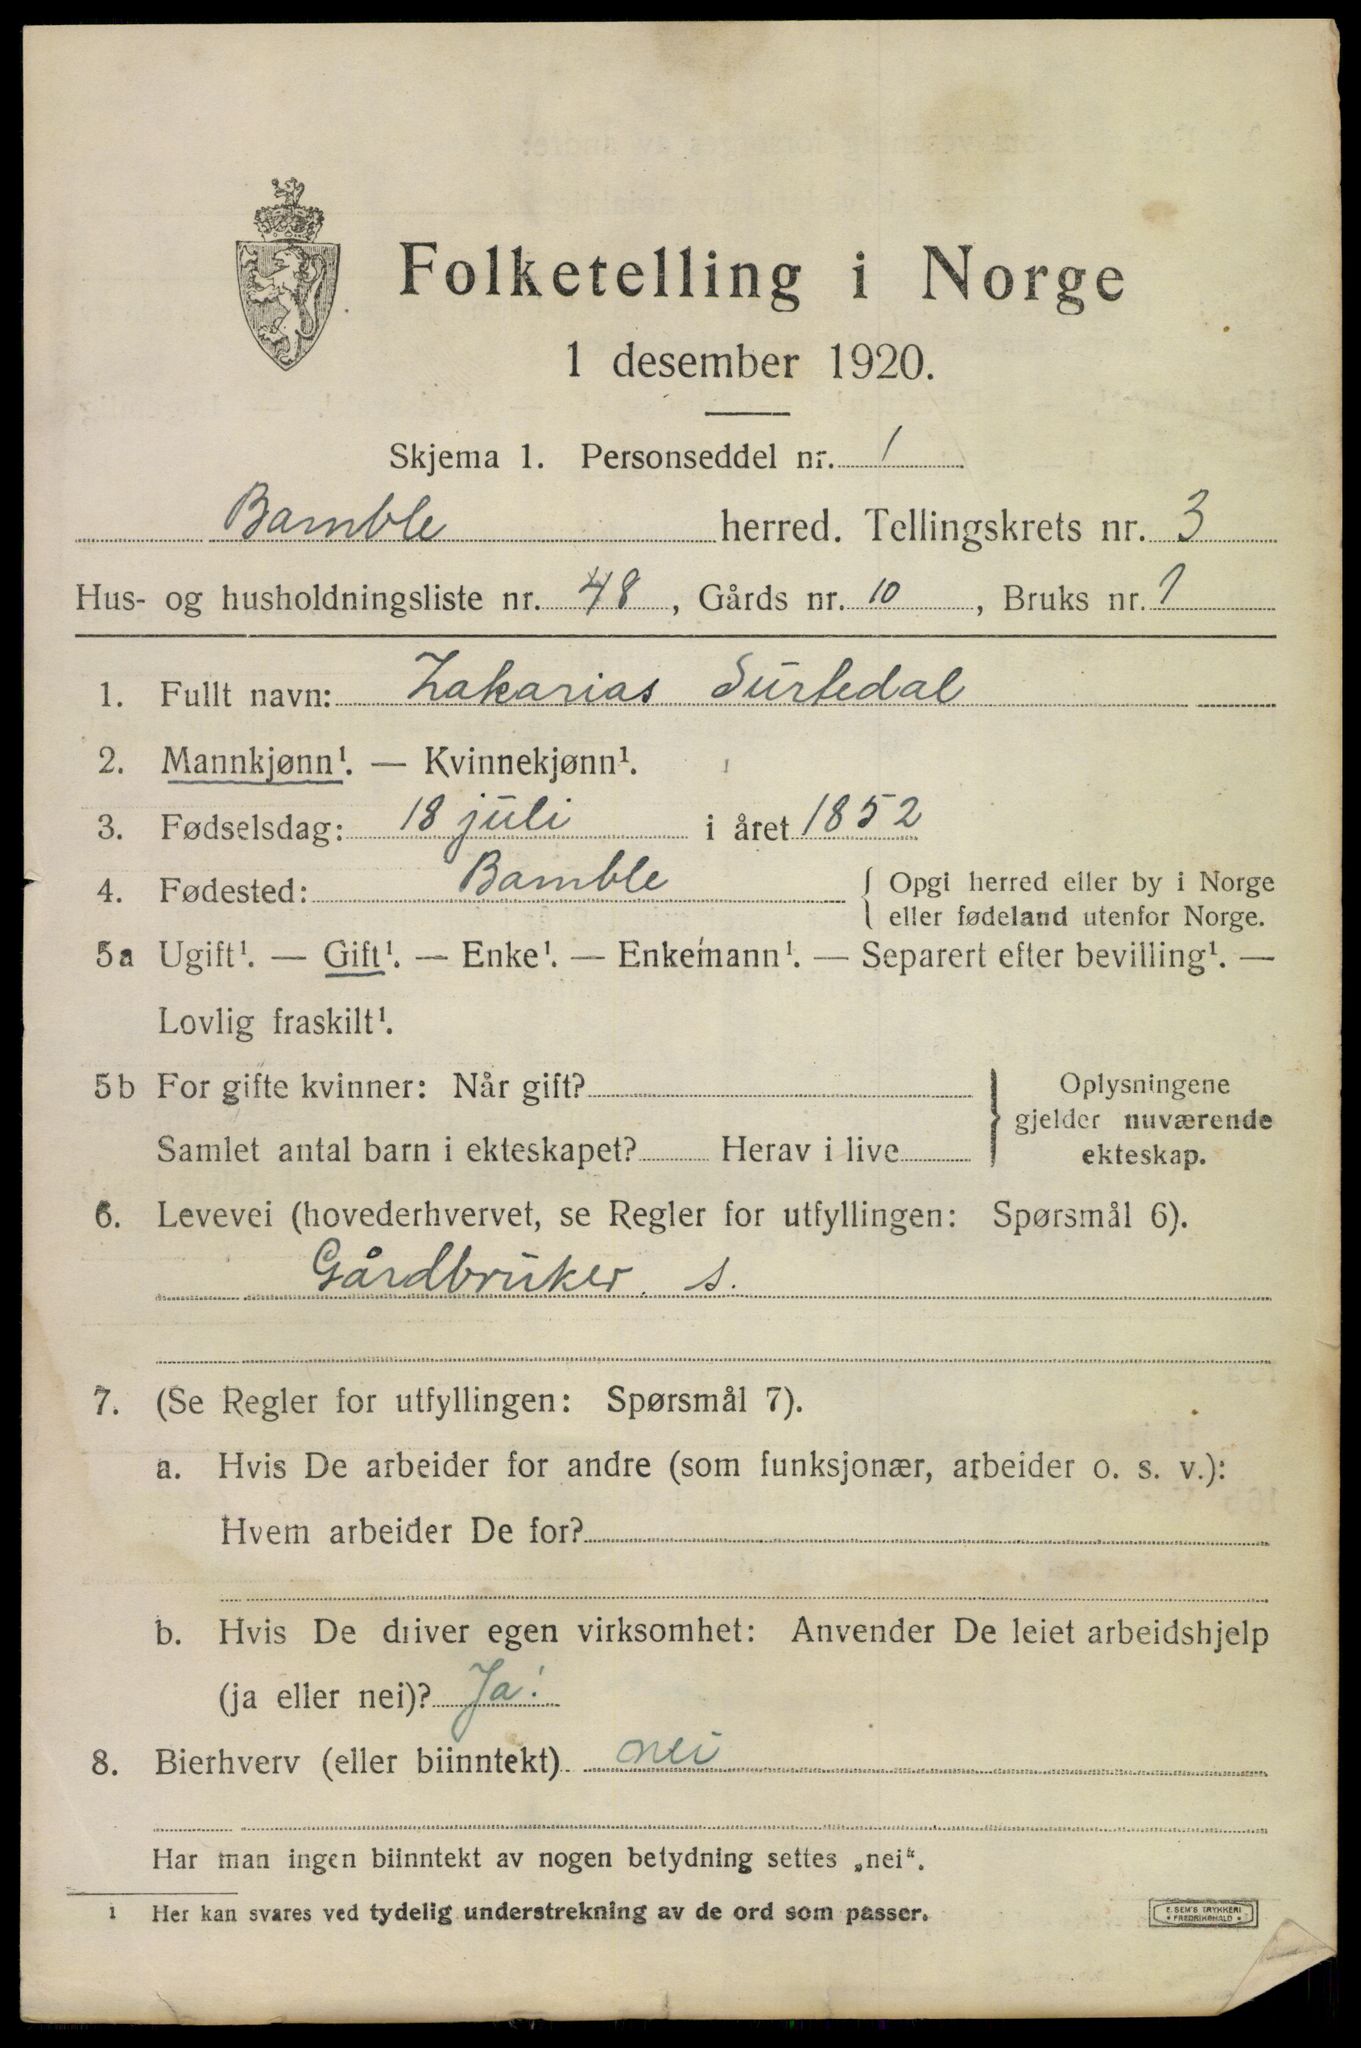 Folketelling i Norge
1 desember 1920.
Skjema 1. Personseddel nr. 1
Bamble herred. Tellingskrets nr. 3
Hus- og husholdningsliste nr. 48, Gårds nr. 10, Bruks nr. 1
1. Fullt navn: Zakarias Surtedal
2. Mannkjønn¹. — Kvinnekjønn¹.
3. Fødselsdag: 18 juli i året 1852
4. Fødested: Bamble { Opgi herred eller by i Norge
eller fødeland utenfor Norge.
5a Ugift¹. — Gift¹. — Enke¹. — Enkemann¹. — Separert efter bevilling¹. —
Lovlig fraskilt¹.
5b For gifte kvinner: Når gift? } Oplysningene
gjelder nuværende
Samlet antal barn i ekteskapet? Herav i live ekteskap.
6. Levevei (hovederhvervet, se Regler for utfyllingen: Spørsmål 6).
Gårdbruker. s.
7. (Se Regler for utfyllingen: Spørsmål 7).
a. Hvis De arbeider for andre (som funksjonær, arbeider o. s. v.):
Hvem arbeider De for?
b. Hvis De driver egen virksomhet: Anvender De leiet arbeidshjelp
(ja eller nei)? Ja!
8. Bierhverv (eller biinntekt) nei
Har man ingen biinntekt av nogen betydning settes „nei“.
1 Her kan svares ved tydelig understrekning av de ord som passer.
E. SEM'S TRYKKERI
FREDRIKSHALD